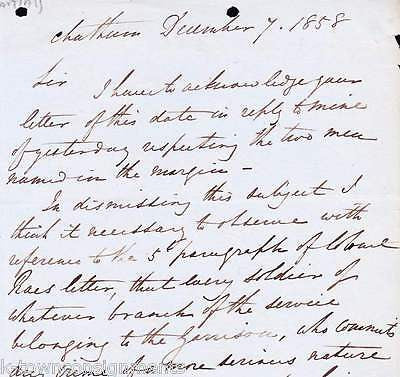 Chatham December 7. 1858
Sir
I have to acknowledge your
letter of this date in reply to mine
of yesterday respecting the two men
named in the margin -
In dismissing this subject I
think it necessary to observe with
reference to the 5 paragraph of Colonel
letter, that every soldier of
whatever branch of the service
belonging to the Garrison, who commits
any crime of a more serious nature